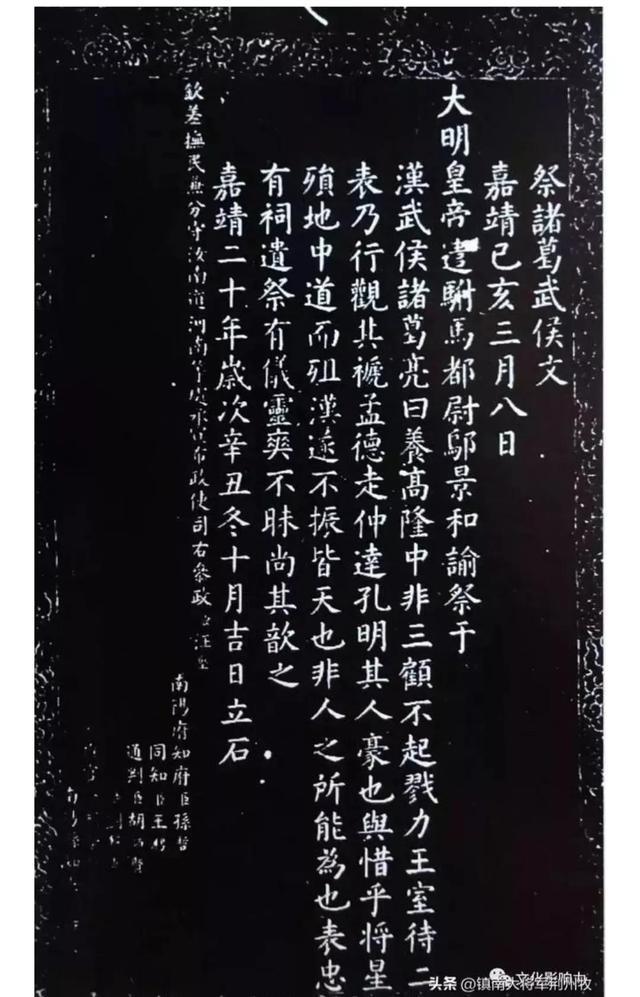 祭諸葛武侯文
嘉靖己亥三月八日
大明皇帝遣駙馬都尉鄔景和諭祭于
漢武侯諸葛亮曰養髙隆中非三顧不起戮力王室待二
表乃行觀其褫孟德走仲達孔明其人豪也與惜乎將星
殞地中道而殂漢遂不振皆天也非人之所能為也表忠
有祠遺祭有儀靈爽不昧尚其歆之
嘉靖二十年歲次辛丑冬十月吉日立石
欽差撫民無分守汝南道河南等處承宣布政使司右叅政臣汪
南陽府知府臣孫哲
同知臣王
通判臣胡
头条 @镇南大将军荆州牧
文化影响力